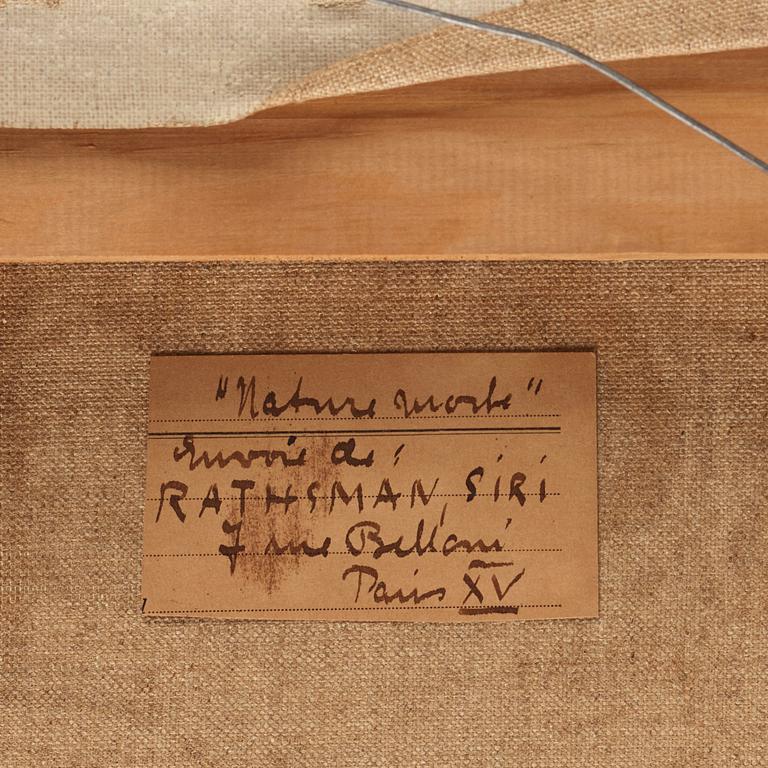 "Nature morte"
Envoie de:
RATHSMAN, SIRI
7 rue Belloni
Paris XV